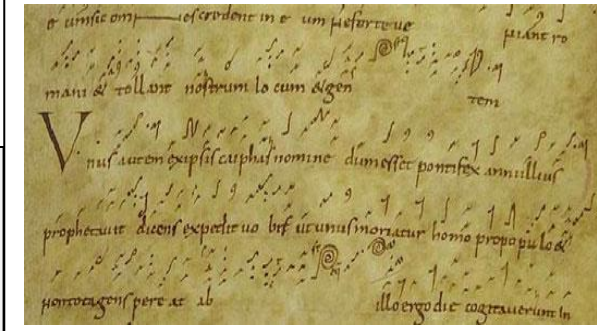 e um sic om es credent in e um ne forte ve niant ro
mani & tollant nostrum lo cum & gen tem
Vnus autem ex ipsis caiphas nomine dum esset pontifex anni illius
prophetavit dicens expedit vo bis ut unus moriatur homo pro populo &
non tota gens pere at ab illo ergo die cogitaverunt in